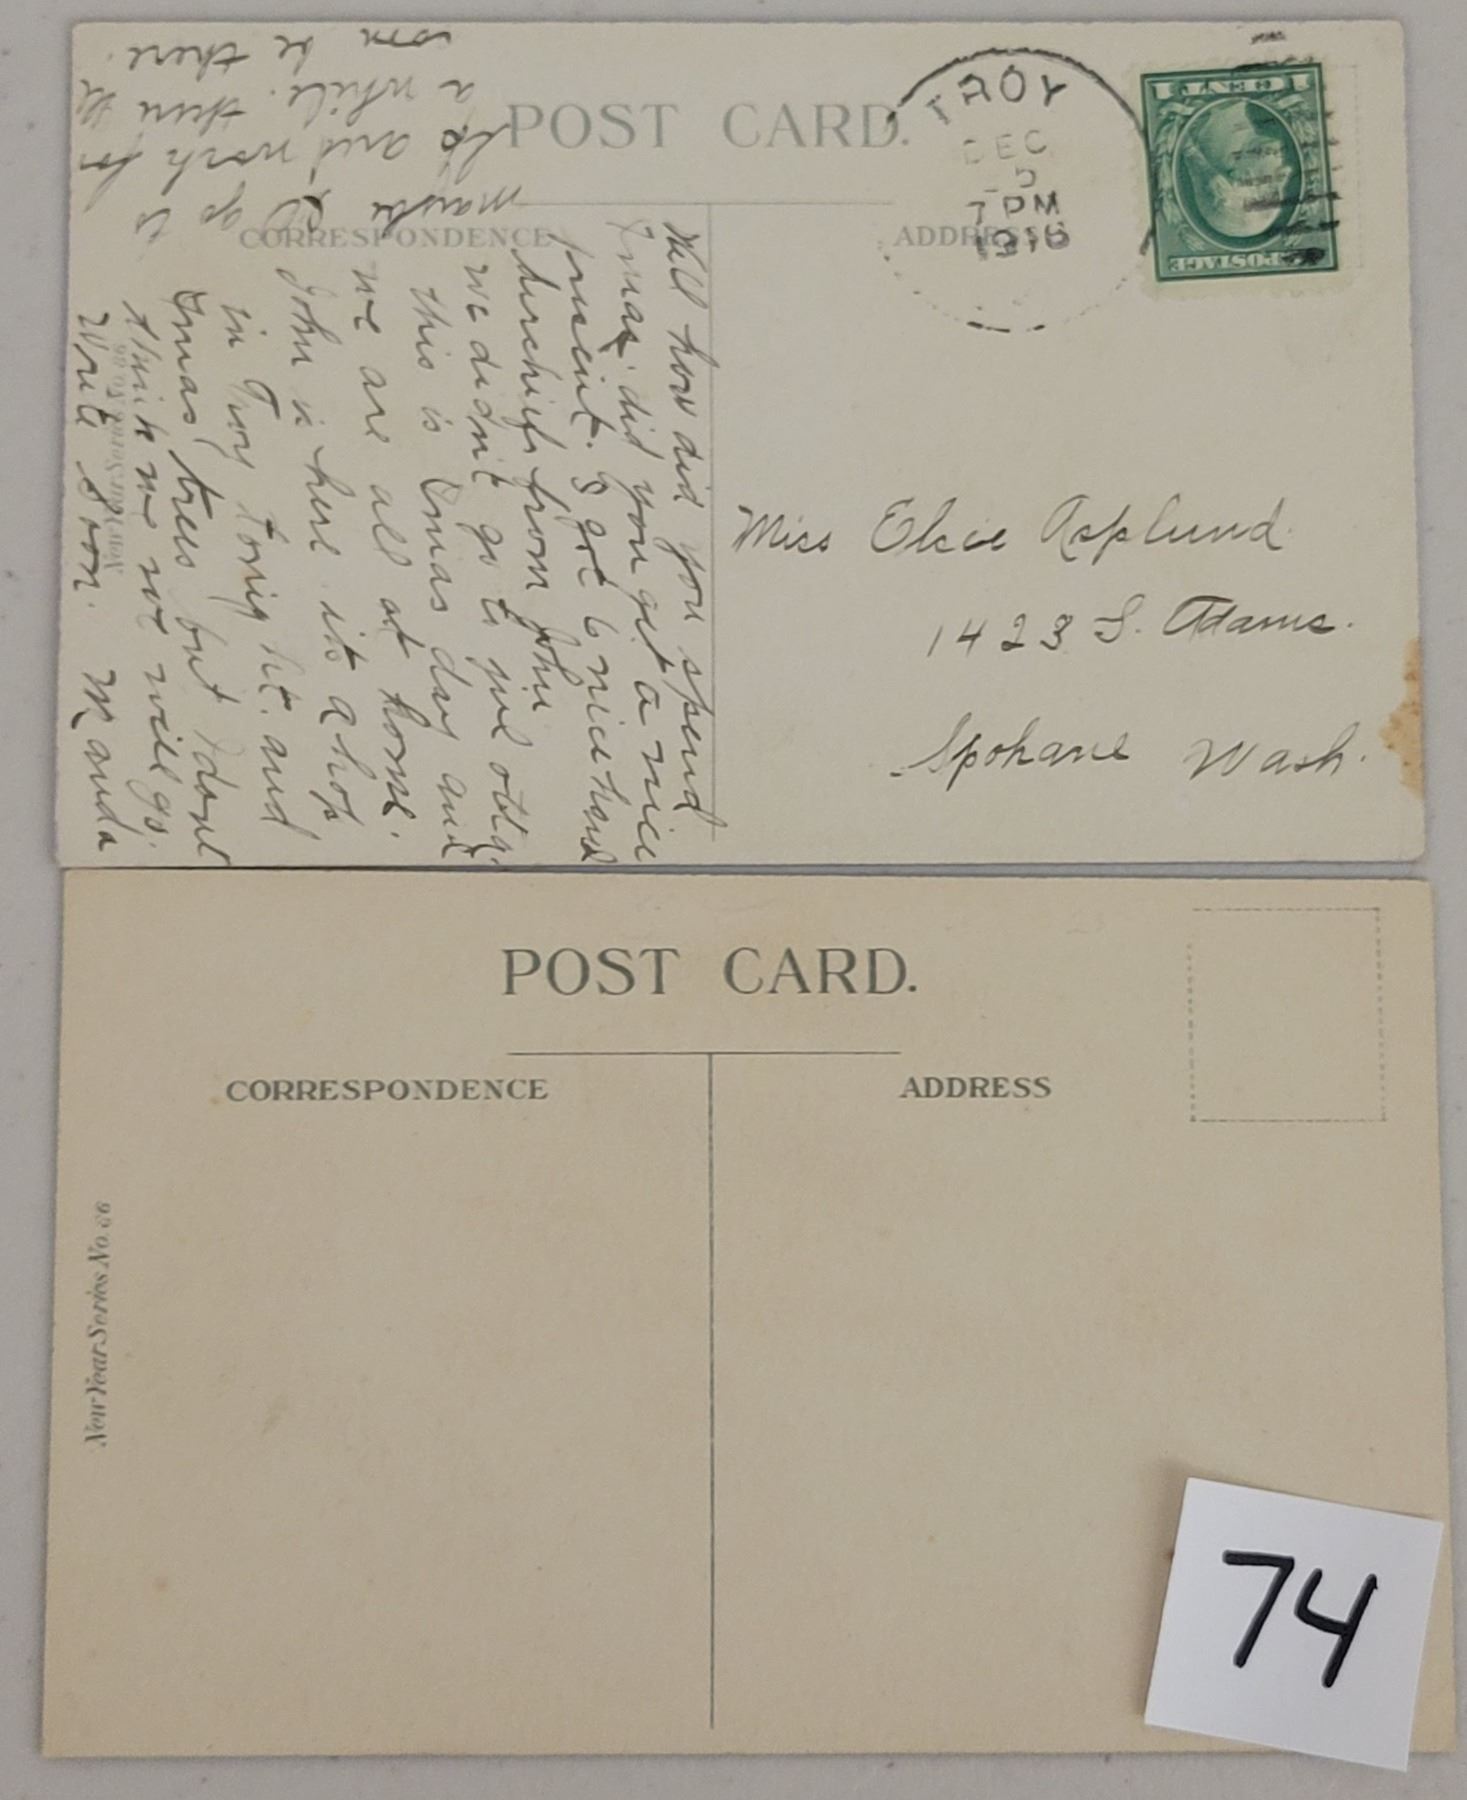 POST CARD.
CORRESPONDENCE
ADDRESS
TROY
DEC
5
7 PM
1916
1 CENT 1
POSTAGE
Miss Elsie Asplund.
1423 S. Adams.
Spokane Wash.
Well how did you spend
Xmas. did you get a nice
present. I got 6 nice hand
kerchiefs from John
we didn't go to jul otta.
this is Xmas day and
we are all at home.
John is here its a hop
in Troy tonight. and
Xmas trees but I dont
think we not will go.
Write soon. Manda
go to
and work for
a while. then Ill
soon be there.
New Year Series No. 66
POST CARD.
CORRESPONDENCE
ADDRESS
New Year Series No. 66
74